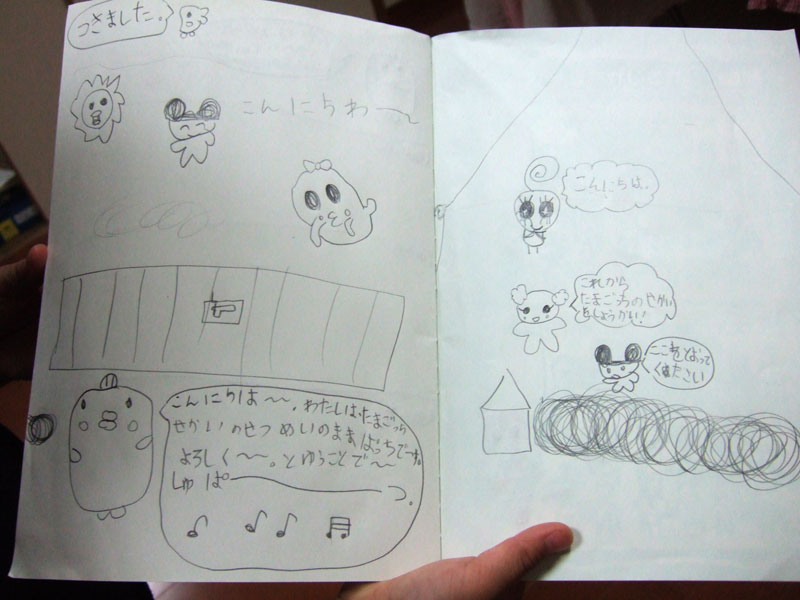 つきました。
こんにちわ〜
こんにちは〜〜。わたしはたまごっち
せかいのせつめいのままぱっちで〜す。
よろしく〜〜。とゆうことで〜
しゅぱーーーっ。
こんにちは。
これから
たまごっちのせかい
をしょうかい!
ここをとおって
ください